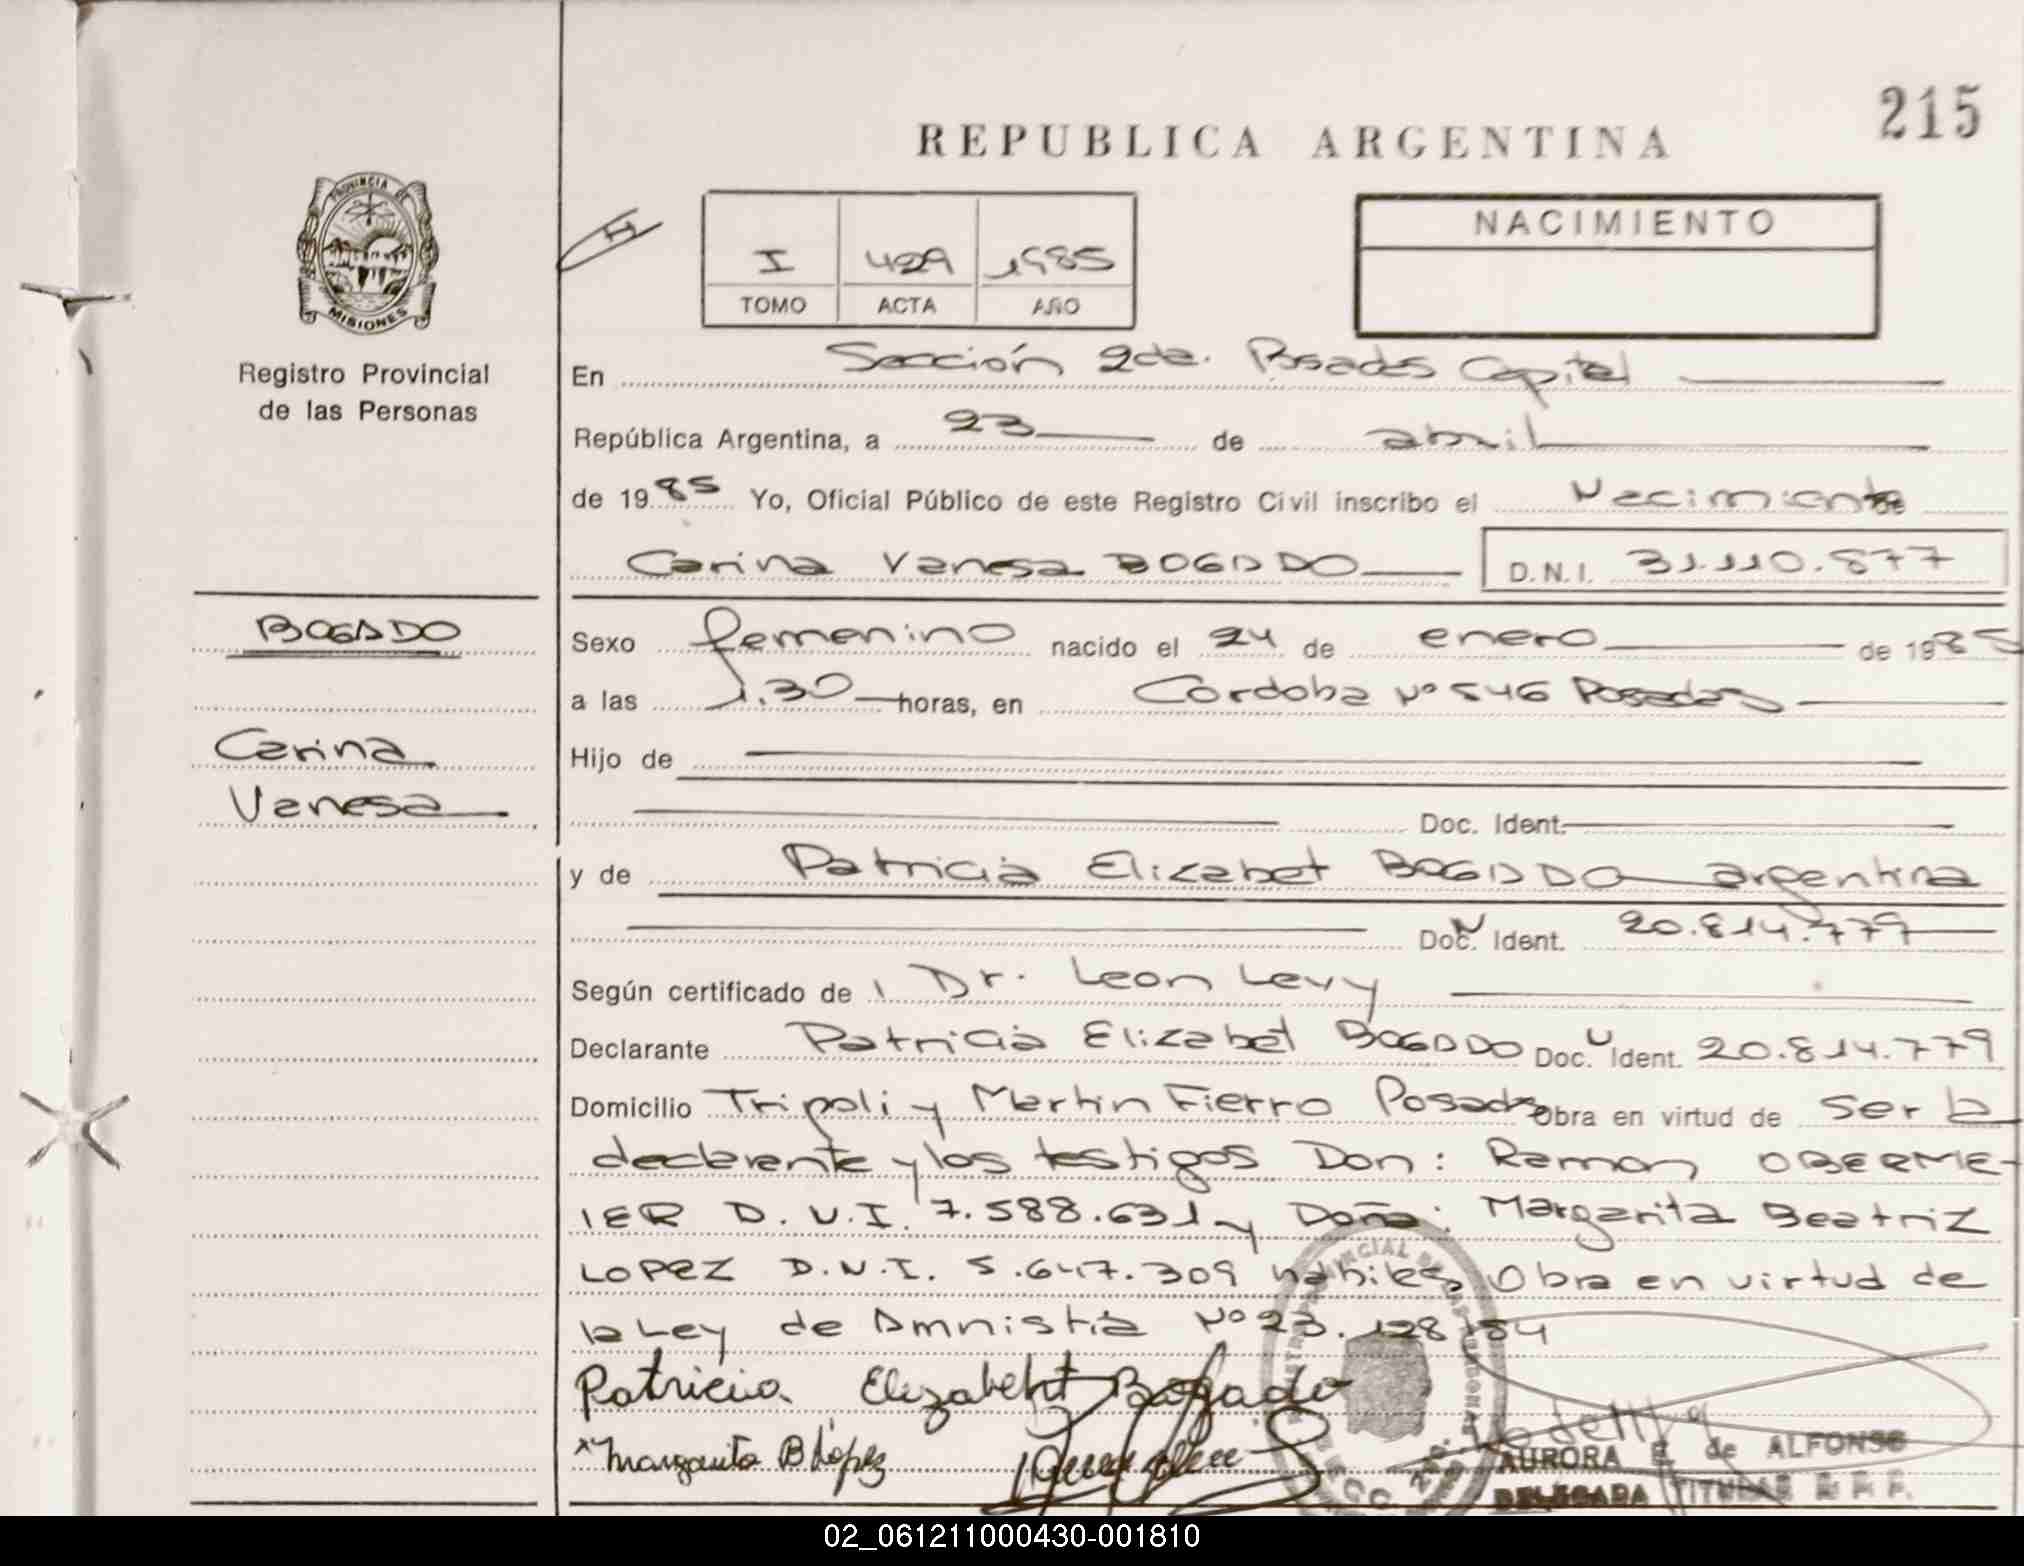 215
REPUBLICA ARGENTINA
PROVINCIA DE
MISIONES
Registro Provincial
de las Personas
I 429 1985
TOMO ACTA AÑO
NACIMIENTO
En Sección 2da. Posadas Capital
República Argentina, a 23 de abril
de 1985 Yo, Oficial Público de este Registro Civil inscribo el Nacimiento de
Carina Vanesa BOGADO D.N.I. 31.110.877
BOGADO
Carina
Vanesa
Sexo femenino nacido el 24 de enero de 1985
a las 1.30 horas, en Cordoba Nº 546 Posadas
Hijo de
Doc. Ident.
y de Patricia Elizabet BOGADO argentina
Doc. Ident. 20.814.779
Según certificado de Dr. Leon Levy
Declarante Patricia Elizabet BOGADO Doc. Ident. 20.814.779
Domicilio Tripoli y Martin Fierro Posadas Obra en virtud de ser la
declarante y los testigos Don: Ramon OBERME-
IER D.N.I. 7.588.631 y Doña: Margarita Beatriz
LOPEZ D.N.I. 5.647.309 habiles, Obra en virtud de
la Ley de Amnistia Nº 23.128/84
Patricia Elizabeht Bogado
Margarita B López
AURORA E. de ALFONSO
DELEGADA TITULAR R.P.P.
02_061211000430-001810